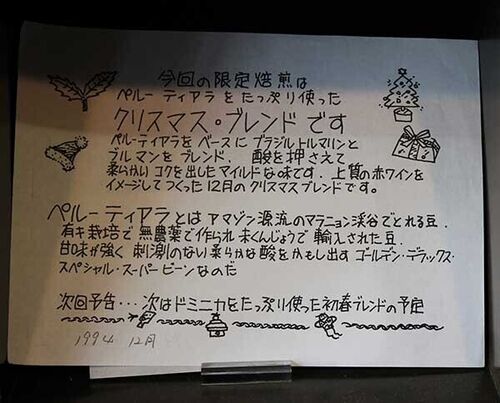 今回の限定焙煎は
ペルーティアラをたっぷり使った
クリスマス・ブレンドです
ペルーティアラをベースにブラジルトルマリンと
ブルマンをブレンド、酸を押さえて
柔らかいコクを出したマイルドな味です。上質の赤ワインを
イメージしてつくった12月のクリスマスブレンドです。
ペルーティアラとはアマゾン源流のマラニョン渓谷でとれる豆.
有キ栽培で無農薬で作られ未くんじょうで輸入された豆.
甘味が強く刺激のない柔らかな酸をかもし出すゴールデン・デラックス・
スペシャル・スーパービーンなのだ
次回予告・・・次はドミニカをたっぷり使った初春ブレンドの予定
1994 12月